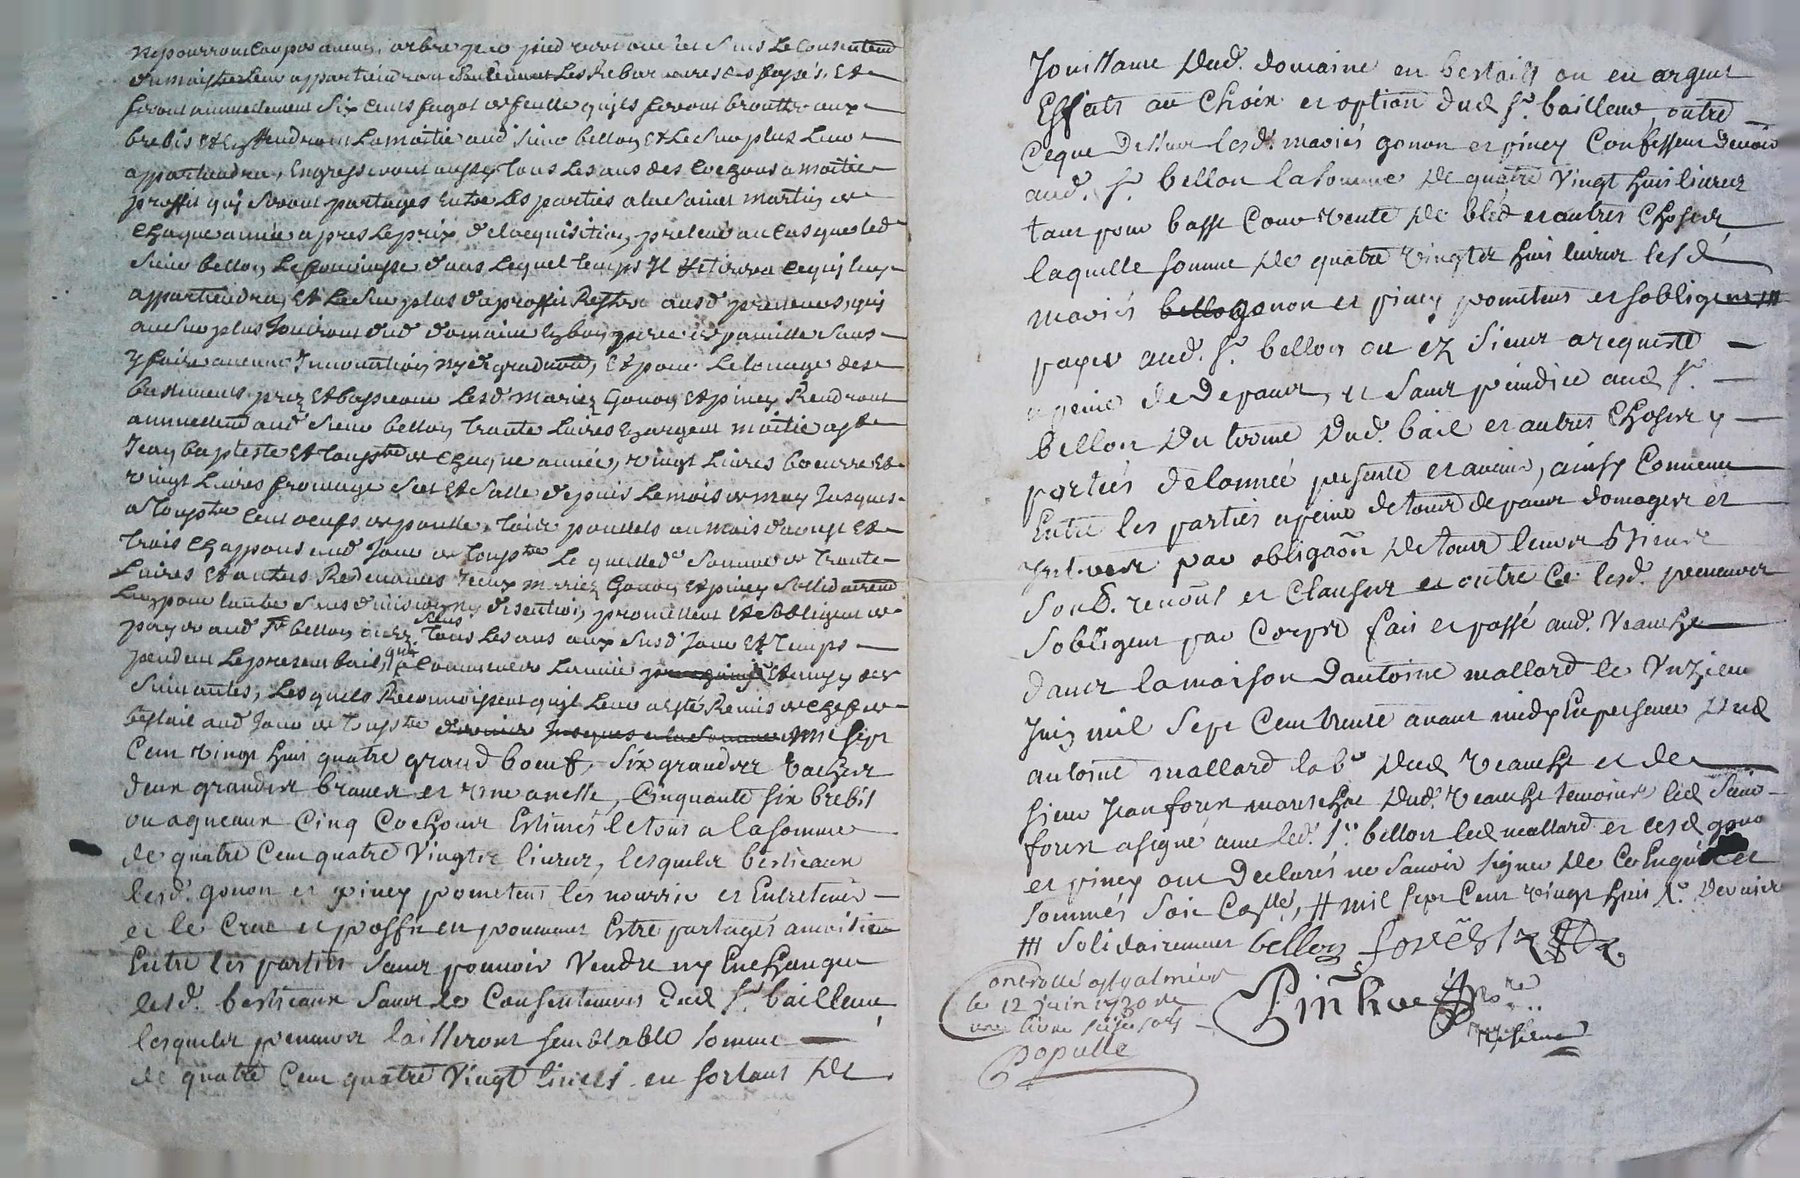 ne pourront couper aucuns arbre par pied vert ou sec sans le Consentem
du maistre leur appartiendront seulement les Rebarbures des hayes, Et
feront annuelement six cents fagot de feuille quils feront broutter aux
brebis et En Rendront la moitié aud sieur bellon Et le surplus leur
appartiendra, Engresseront aussy tous les ans des Cochons a moitié
proffit quy seront partagés Entre les parties a la saint martin de
Chaque année apres le prix de lacquisition prelevé au Cas que led
sieur bellon le fournisse dans lequel temps Il Retirera ce quy luy
appartiendra, Et le surplus du proffit Restera ausd preneurs, quy
au surplus Jouiront dud domaine En bon pere de famille sans
y faire aucune Innovation ny degradaon, Et pour le louage des
bastiments prez Et basse cour lesd mariez Gonon Et piney Rendront
annuellemt aud sieur bellon trante livres En argent moitié a st
Jean baptiste Et toustz de Chaque année, vingt Livres boeurre Et
vingt Livres fromage sec Et sallé depuis le mois de may Jusques
a toustz Cent oeufs de poulle, trois poullets au mois daoust Et
trois Chappons aud Jour de toustz Le quelled somme de trante
Livres Et autres Redevances Iceux mariez Gonon Et piney sollidairemt
Lun pour lautre sans division ny discution promettent Et sobligent de
payer aud sr bellon ou ez siens tous les ans aux susd Jour Et temps
pendant le present bail, a Commencer lannée Et ainsy des
suivantes, Lesquels Reconnoissent quil leur a esté Remis de Cheptel
bestail aud Jour de toustz mil sept
Cent vingt huit quatre grand boeuf, six grandes vaches
deux grandes braves et une anesse, Cinquante six brebis
ou agneaux Cinq Cochons Estimés le tout a la somme
de quatre Cent quatre vingtz livres, lesquels bestieaux
lesd. gonon et piney prometent les nourrir et Entretenir
et le Croc et proffit en provenant Estre partagés a moitié
Entre les parties sans pouvoir vendre ny Enchanger
lesd. bestieaux sans le Consentement dud sr. bailleur
lesquels preneurs laisseront semblable somme
de quatre Cent quatre vingt livres en sortant de
Jouissance dud. domaine en bestails ou en argent
Effects au Choix et option dud sr. bailleur, outre
Ceque dessus lesd. mariés gonon et piney Confessent devoir
aud. sr. bellon la somme de quatre vingt huit livres
tant pour basse Cour vente de bled et autres Choses
laquelle somme de quatre vingts huit livres lesd
mariés bello gonon et piney prometent et sobligent ///
payer aud. sr. bellon ou ez siens a requeste
a peine de depans, et sans prejudice aud sr.
bellon du terme dud. bail et autres Choses y
portées de lannée presente et avenir, ainsy Convenu
Entre les parties a peine de tous depans domages et
Interest par obligaon de tous leurs biens
soub. renons et Clauses et outre Ce lesd. preneurs
sobligent par Corps fait et passé aud. veauche
dans la maison dantoine mallard le unzieme
Juin mil sept Cent trente avant midy En presence dud
antoine mallard labr dud veauche et de
sieur Jean forest mareschal dud. veauche temoins led sieur
forest a signé avec led. sr. bellon led mallard et lesd gonon
et piney ont declarés ne savoir signer de Ce Enquis et
sommés soit Coslé, # mil sept Cent vingt huit dr. dernier
/// solidairement bellon forest
Controllé a st galmier
le 12 juin 1730 re
une livre
Populle
Pinhue